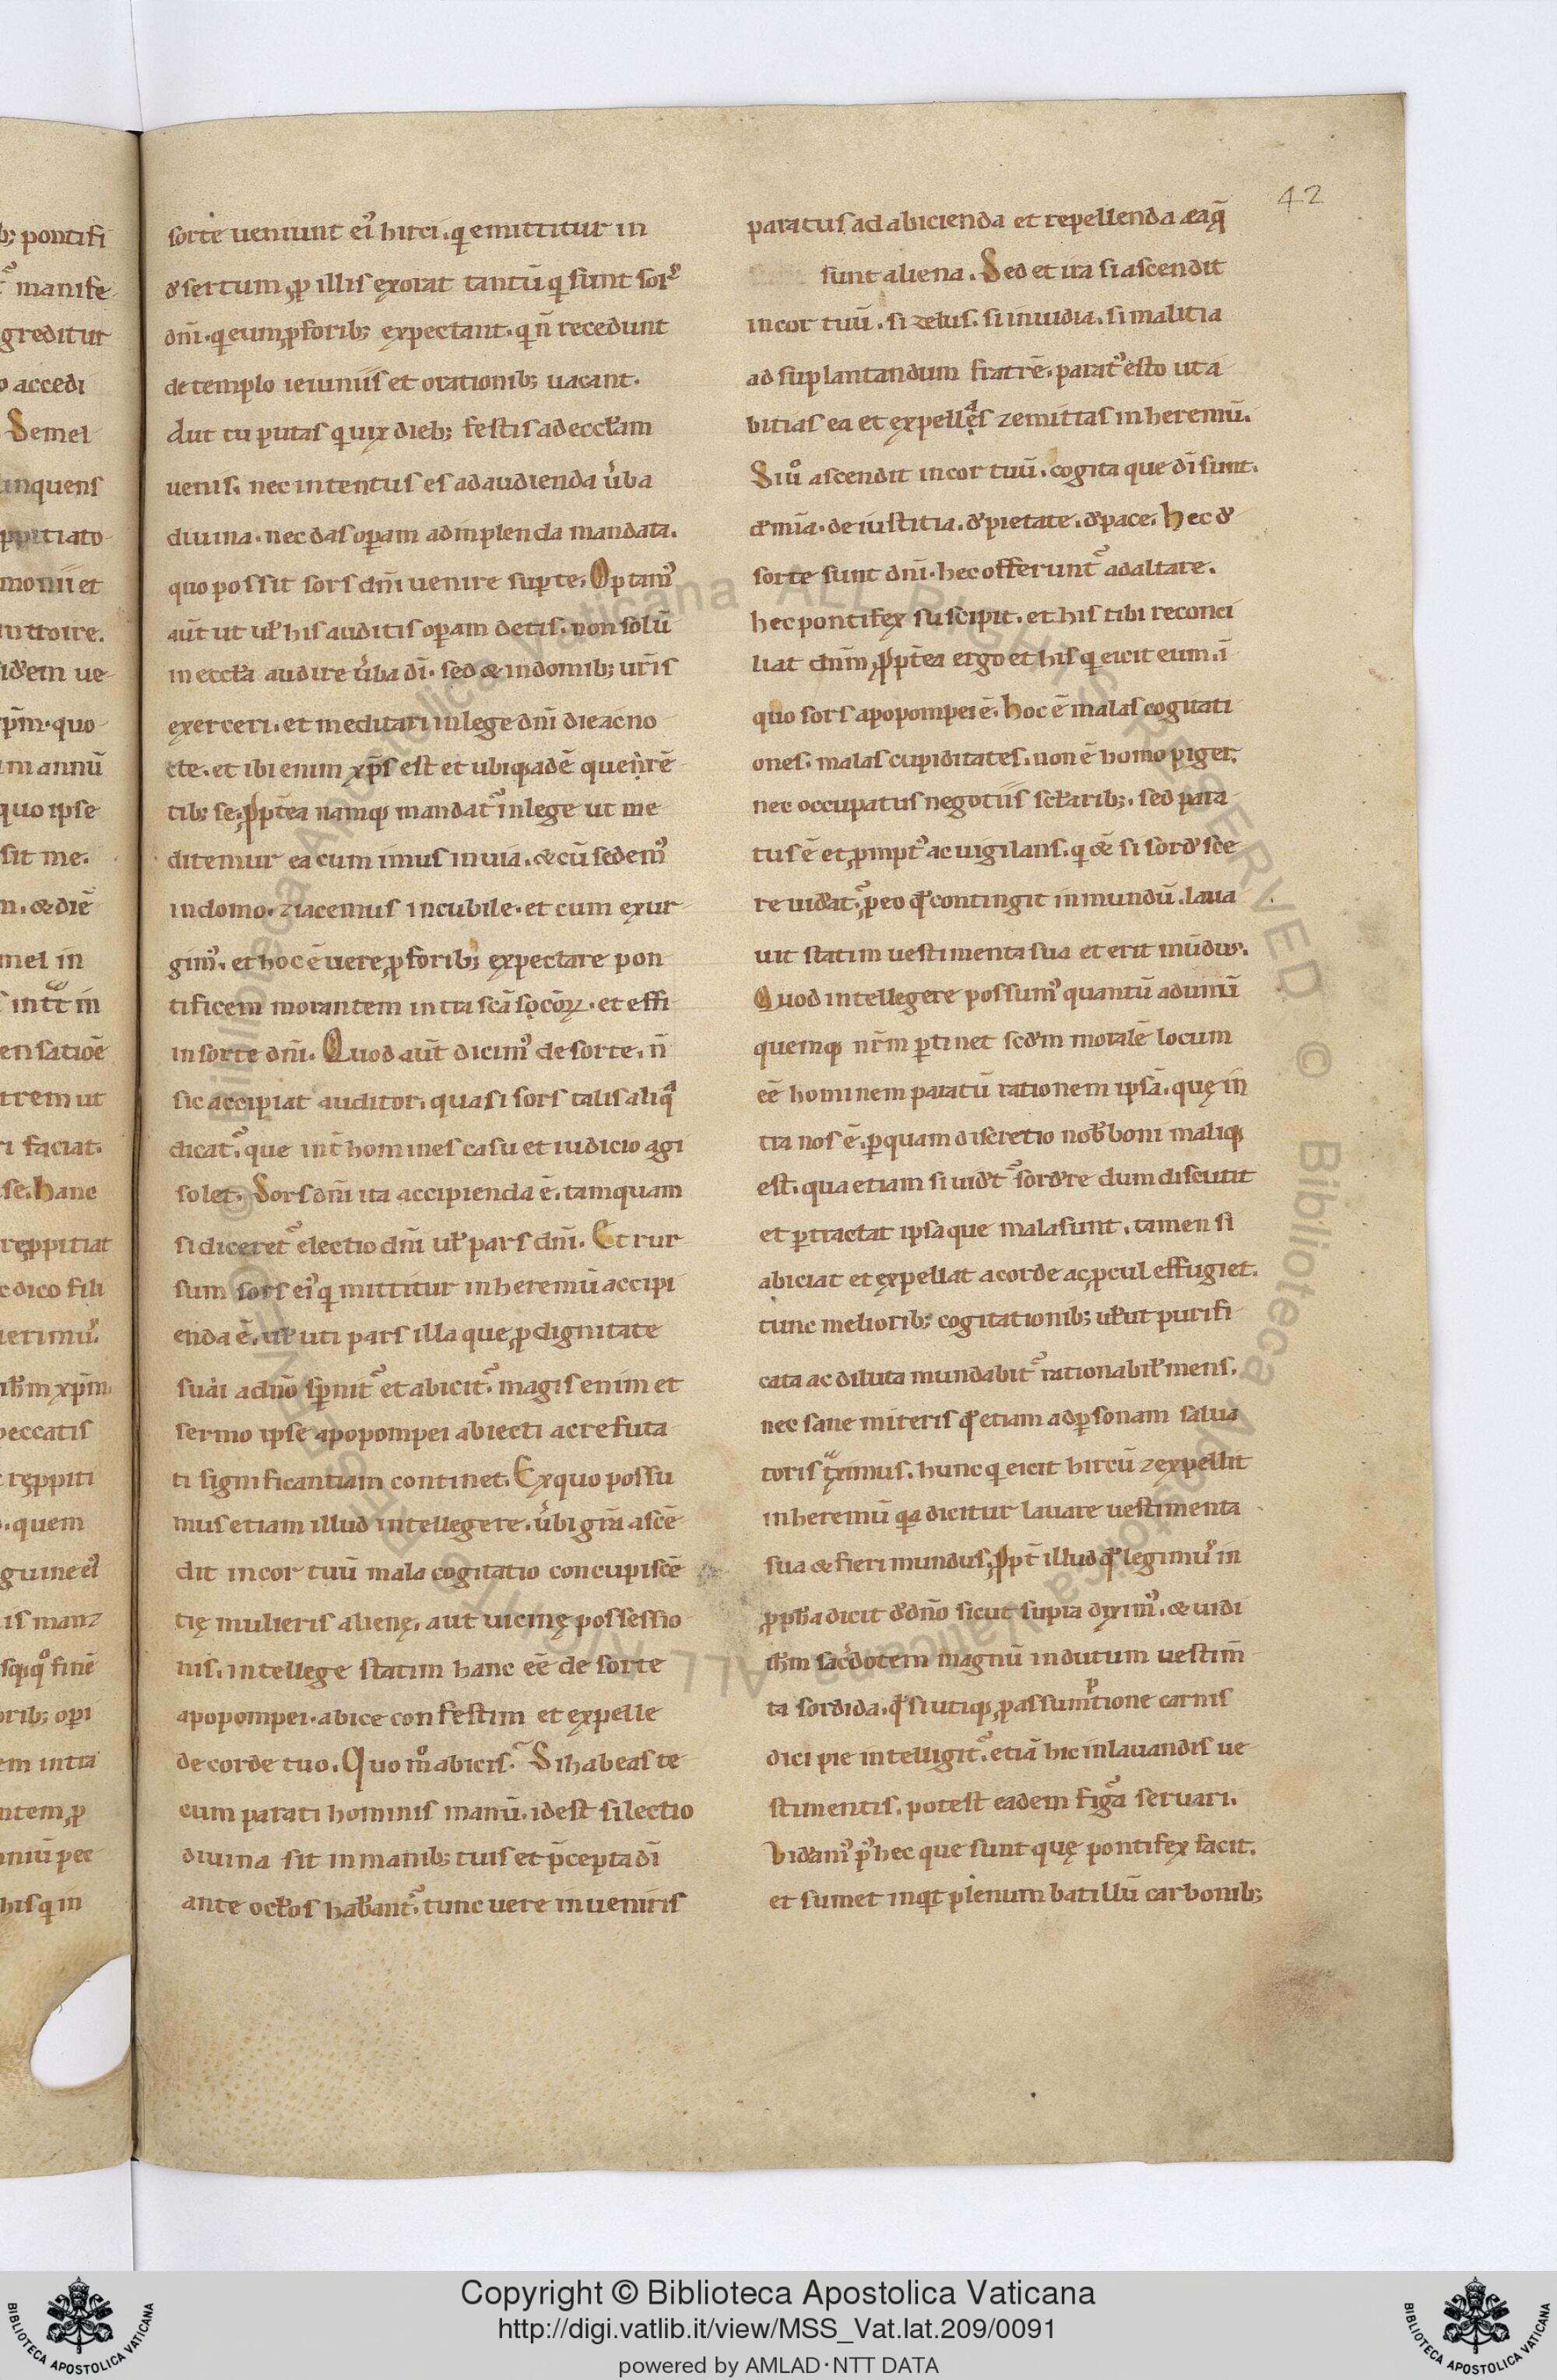 b; pontifi
manife
greditur
o accedi
Semel
linquens
ppitiato
monii et
introire.
idem ue
xp̄m. quo
m annū
quo ipse
sit me.
n. & diē
mel in
in
ensatioē
trem ut
ri faciat.
se. hanc
reppitiat
c dico fili
ierimꝰ.
ihm xp̄m.
peccatis
reppiti
. quem
guine eiꝰ
is man⁊
finē
orib; opi
em intra
ntem, ꝓ
oniū pec
his qi in
42
sorte ueniunt eiꝰ hirci. qi emittitur in
desertum, ꝓ illis exorat tantū qi sunt sorˢ
dnī. qi eum ꝓ forib; expectant. qi n̄ recedunt
de templo ieiuniis et orationib; uacant.
Aut tu putas qi uix dieb; festis ad eccł̄am
uenis. nec intentus es ad audienda ũba
diuina. nec das oꝑam adimplenda mandata.
quo possit sors dnī uenire suꝑ te. Optamꝰ
aūt ut uł his auditis oꝑam detis. non solū
in eccł̄a audire ũba dī. sed & in domib; urīs
exerceri. et meditari in lege dnī die ac no
cte. et ibi enim xp̄s est et ubiq; adē querẽ
tib; se. ꝓpt̄ea namq; mandatᷣ in lege ut me
ditemur ea cum imus in uia. & cū sedemꝰ
in domo. ⁊ iacemus in cubile. et cum exur
gimꝰ. et hoc ē uere, ꝓ forib; expectare pon
tificem morantem intra scā scōꝝ. et effi
in sorte dnī. Quod aūt dicimꝰ de sorte. n̄
sic accipiat auditor. quasi sors talis aliqᵃ
dicatᷣ. que int̄ homines casu et iudicio agi
solet. Sors dnī ita accipienda ē. tamquam
si diceretᷣ electio dnī uł pars dnī. Et rur
sum sors eiꝰ qi mittitur in heremū accipi
enda ē. uł uti pars illa que, ꝓ dignitate
sui a dnō sꝑnitᷣ et abicitᷣ. magis enim et
sermo ipse apopompei abiecti ac refuta
ti significantiam continet. Ex quo possu
mus etiam illud intellegere. ũbi grā ascē
dit in cor tuū mala cogitatio concupiscē
tię mulieris alienę. aut uicinę possessio
nis. intellege statim hanc eē de sorte
apopompei. abice confestim et expelle
de corde tuo. Quo m̊ abicis. Si habeas te
cum parati hominis manū. id est si lectio
diuina sit in manib; tuis et p̄cepta dī
ante ocłos habantᷣ. tunc uere inueniris
paratus ad abicienda et repellenda ea q̄
sunt aliena. Sed et ira si ascendit
in cor tuū. si zelus. si inuidia. si malitia
ad suplantandum fratrē. paratꝰ esto ut a
bitias ea et expellᵃs ⁊ emittas in heremū.
Si ũo ascendit in cor tuū. cogita que dī sunt.
de mīa. de iustitia. de pietate. de pace. hec de
sorte sunt dnī. hec offeruntᷣ ad altare.
hec pontifex suscipit. et his tibi reconci
liat dnm̄, ꝓpt̄ea ergo et his qi eicit eum. ī
quo sors apopompei ē. hoc ē malas cogitati
ones. malas cupiditates. non ē homo piger.
nec occupatus negotiis scłarib;. sed para
tus ē et, ꝓmptꝰ ac uigilans. qi & si sordesce
re uideatᷣ, ꝑ eo qđ contingit inmundū. laua
uit statim uestimenta sua et erit mūdus.
Quod intellegere possumꝰ quantū ad unū
quemq; nr̄m ꝑtinet scdm moralē locum
eē hominem paratū rationem ipsā. quę in
tra nos ē. ꝑ quam discretio nob boni maliq;
est. qua etiam si uidetᷣ sordere dum discutit
et ꝑtractat ipsa que mala sunt. tamen si
abiciat et expellat a corde ac, ꝓcul effugiet.
tunc meliorib; cogitationib; uł ut purifi
cata ac diluta mundabitᷣ rationabił mens.
nec sane miteris qđ etiam ad ꝑsonam salua
toris t̾ximus. hunc qi eicit hircū ⁊ expellit
in heremū qa dicitur lauare uestimenta
sua & fieri mundus, ꝓpt̄ illud qđ legimꝰ in
ꝓpha dicit de dnō sicut supra diximꝰ. & uidi
ihm sacdotem magnū indutum uestim̄
ta sordida. qđ si utiq;, ꝓ assumᵖtione carnis
dici pie intelligitᷣ. etiā hic in lauandis ue
stimentis. potest eadem figᷣa seruari.
Videamꝰ pꝰ hec que sunt quę pontifex facit.
et sumet inqt plenum batillū carbonib;
Copyright © Biblioteca Apostolica Vaticana
http://digi.vatlib.it/view/MSS_Vat.lat.209/0091
powered by AMLAD·NTT DATA
BIBLIOTECA APOSTOLICA VATICANA
BIBLIOTECA APOSTOLICA VATICANA